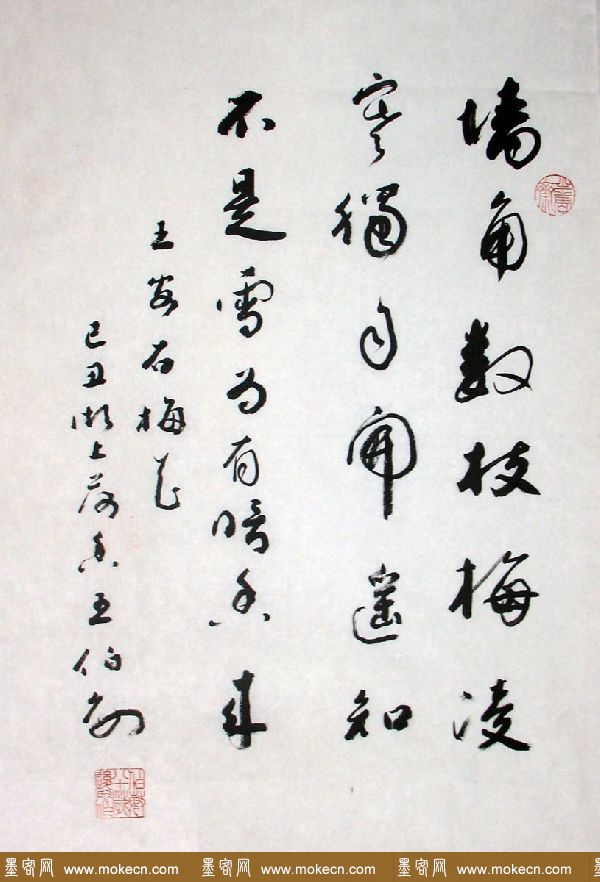 墙角数枝梅凌
寒獨自開遥知
不是雪为有暗香来
王安石梅花
己丑湖上荷香王伯敏
墨客网 www.mokecn.com 墨客网 www.mokecn.com 墨客网 www.mokecn.com